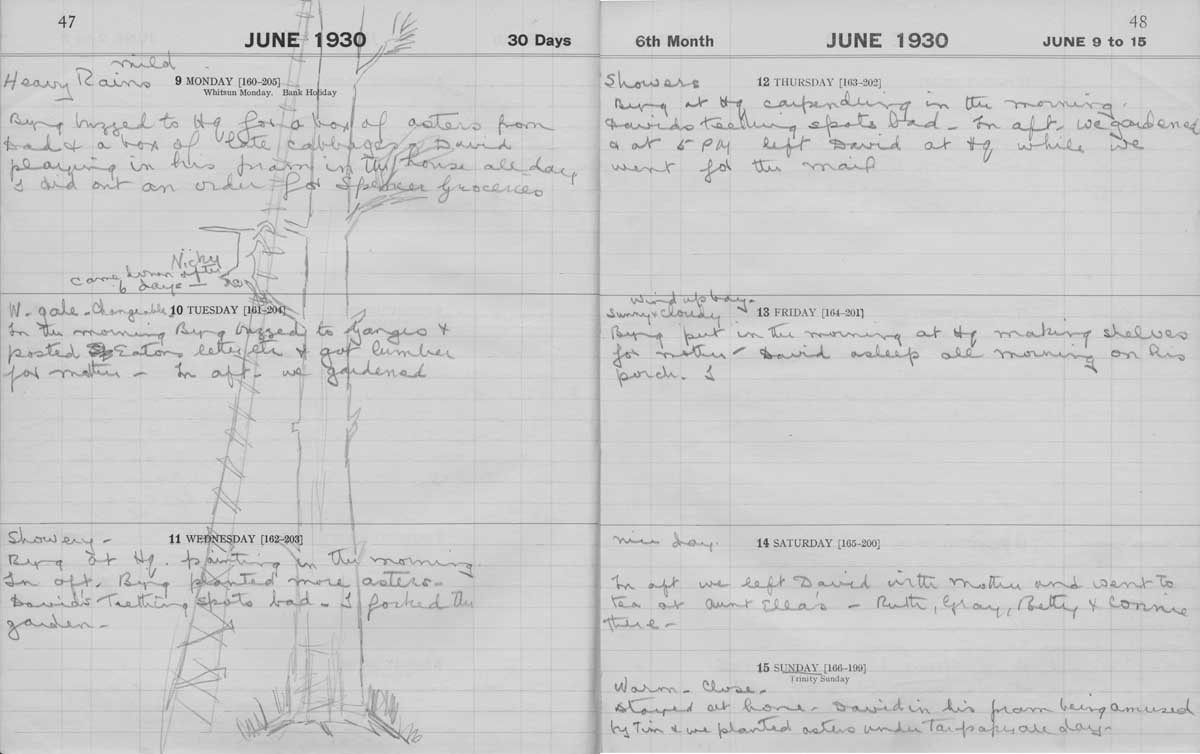 47
JUNE 1930
30 Days
mild
Heavy Rains
9 MONDAY [160–205]
Whitsun Monday. Bank Holiday
Byng buzzed to Hq for a box of asters from
Dad & a box of late cabbages. David
playing in his pram in the house all day,
I did out an order for Spencer Groceries
Nicky
came down after
6 days —
W. gale - Changeable
10 TUESDAY [161–204]
In the morning Byng buzzed to Ganges &
posted Eatons letter etc & got lumber
for mother - In aft. we gardened
Showery -
11 WEDNESDAY [162–203]
Byng at Hq. painting in the morning.
In aft. Byng planted more asters -
David's Teething spots bad - I forked the
garden -
6th Month
JUNE 1930
48
JUNE 9 to 15
Showers
12 THURSDAY [163–202]
Byng at Hq carpendering in the morning.
Davids teething spots bad - In aft. we gardened
& at 5 PM left David at Hq while we
went for the mail
Wind up bay -
Sunny & cloudy
13 FRIDAY [164–201]
Byng put in the morning at Hq making shelves
for mother - David asleep all morning on his
porch. I
nice day.
14 SATURDAY [165–200]
In aft we left David with Mother and went to
tea at Aunt Ella's - Ruth, Gray, Betty & Connie
there -
15 SUNDAY [166–199]
Trinity Sunday
Warm - Close -
Stayed at home - David in his pram being amused
by Tim & we planted asters under Tarpaper all day -